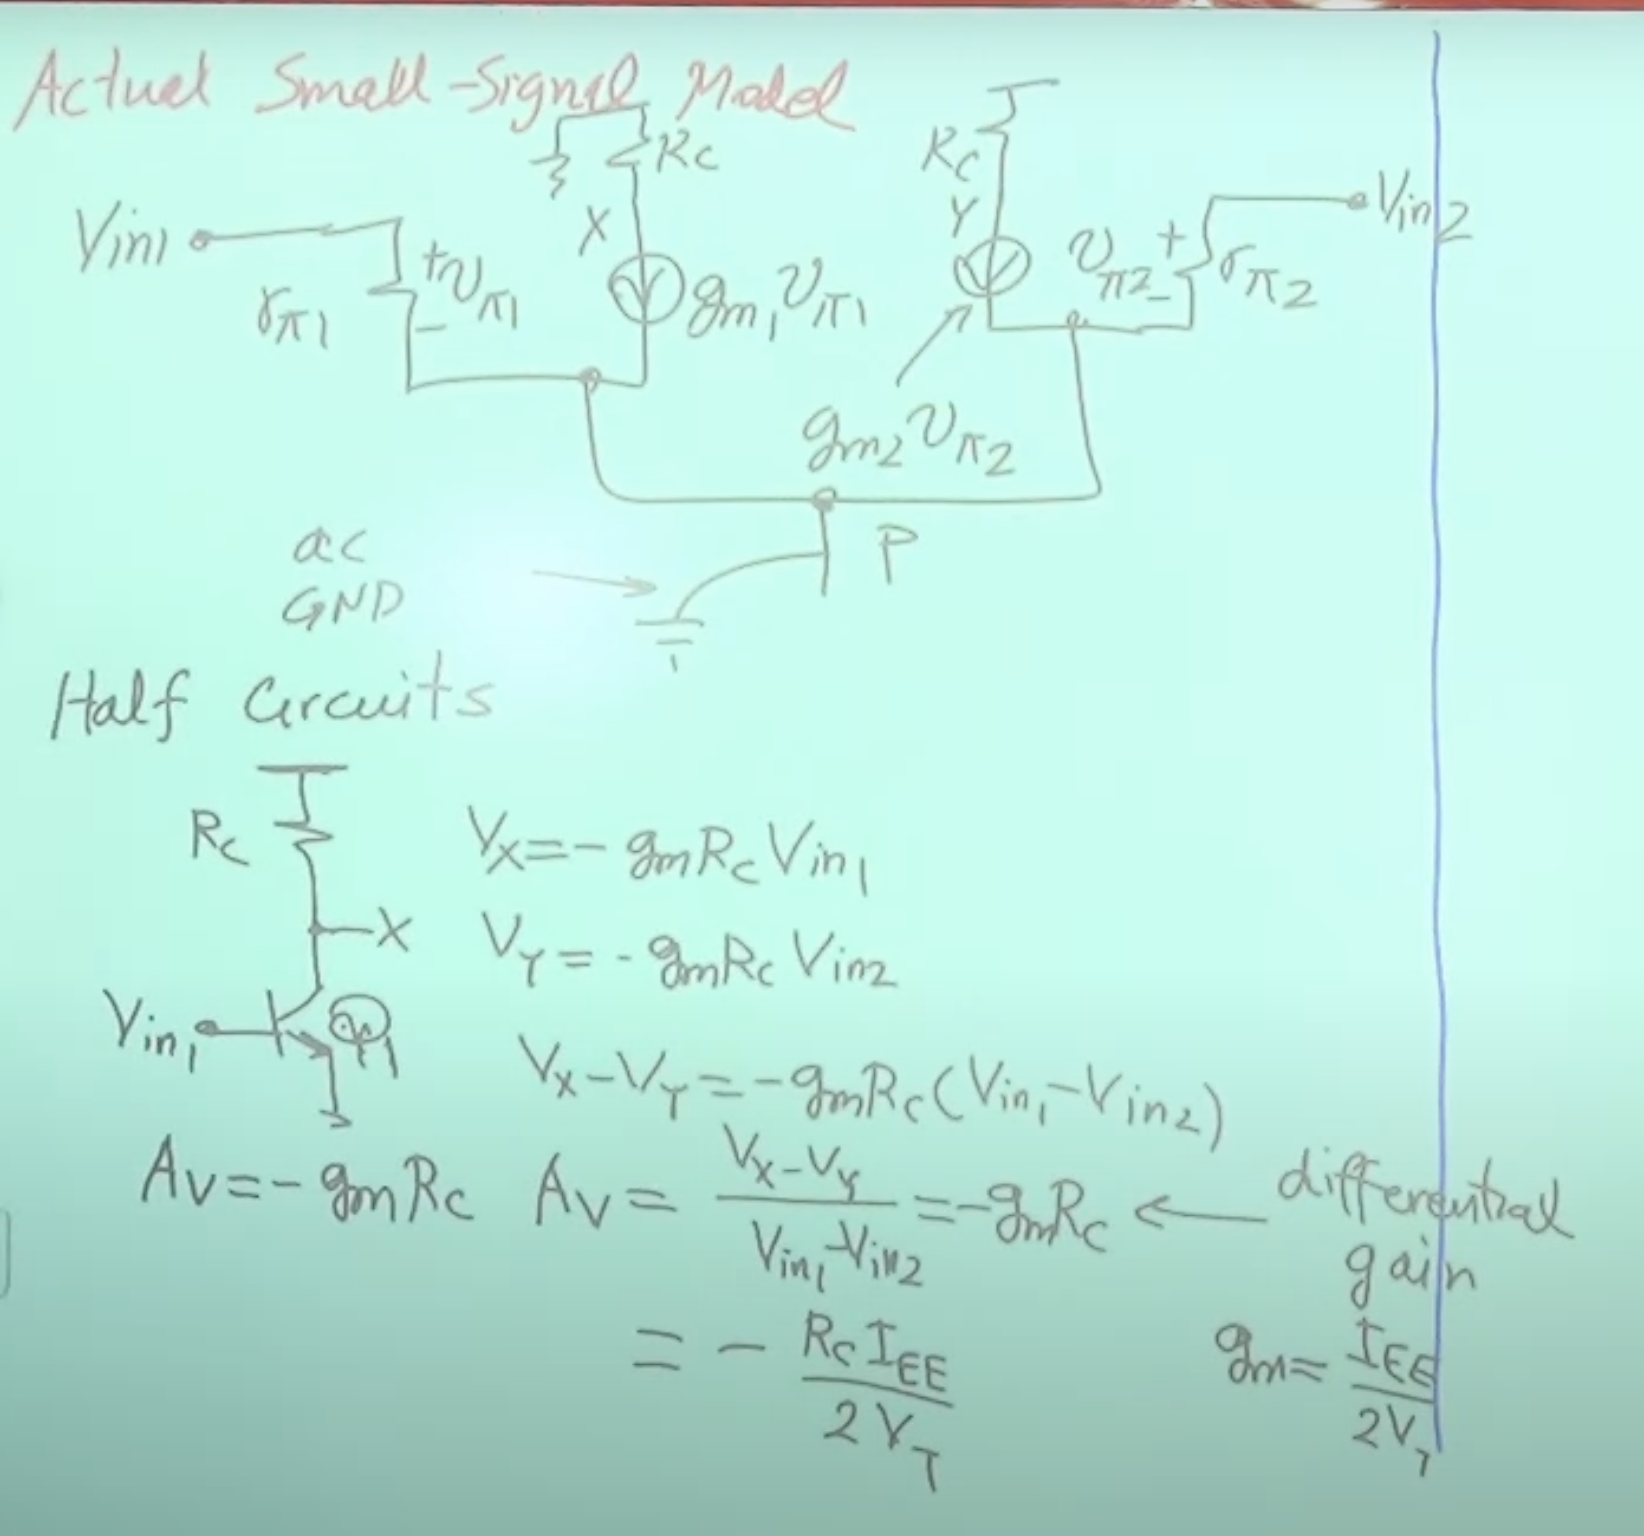 Actual Small-Signal Model
Rc
Rc
Vin1
rπ1
+
vπ1
-
X
gm1 vπ1
Y
vπ2
+
-
rπ2
Vin2
gm2 vπ2
P
ac
GND
Half Circuits
Rc
X
Vin1
Q1
Av=-gmRc
Vx=-gmRcVin1
VY=-gmRcVin2
Vx-VY=-gmRc(Vin1-Vin2)
Av=(Vx-VY)/(Vin1-Vin2)=-gmRc ← differential
gain
=-RcIEE/2VT
gm=IEE/2VT